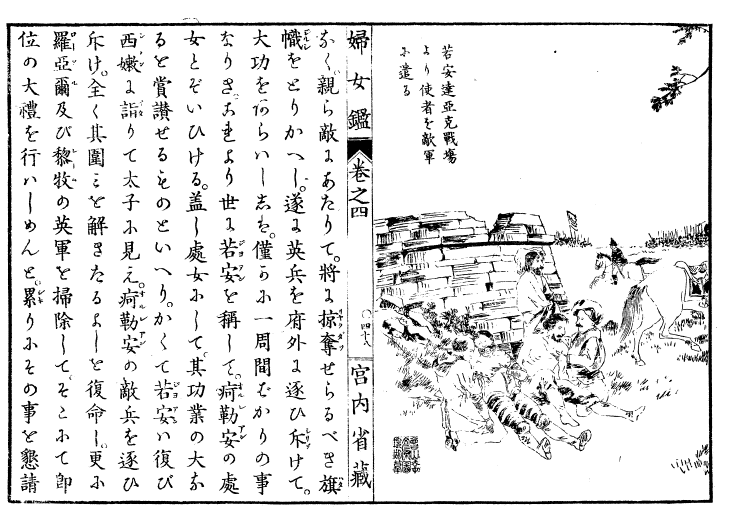 若安達亞克戰塲
より使者を敵軍
に遣る
婦女鑑 卷之四 ○四十八 宮内省藏
なく親ら敵にあたりて。將に掠奪せらるべき旗
幟をとりかへし。遂に英兵を府外に逐ひ斥けて。
大功をあらハしゝは。僅かに一周間ばかりの事
なりき。これより世に若安を稱して。痾勒安の處
女とぞいひける。盖し處女にして。其功業の大な
るを賞讃せるものといへり。かくて若安ハ復び
西嫩に詣りて太子に見え。痾勒安の敵兵を逐ひ
斥け。全く其圍ミを解きたるよしを復命し。更に
羅亞爾及び黎牧の英軍を掃除して。そこにて即
位の大禮を行ハしめんと。累りにその事を懇請